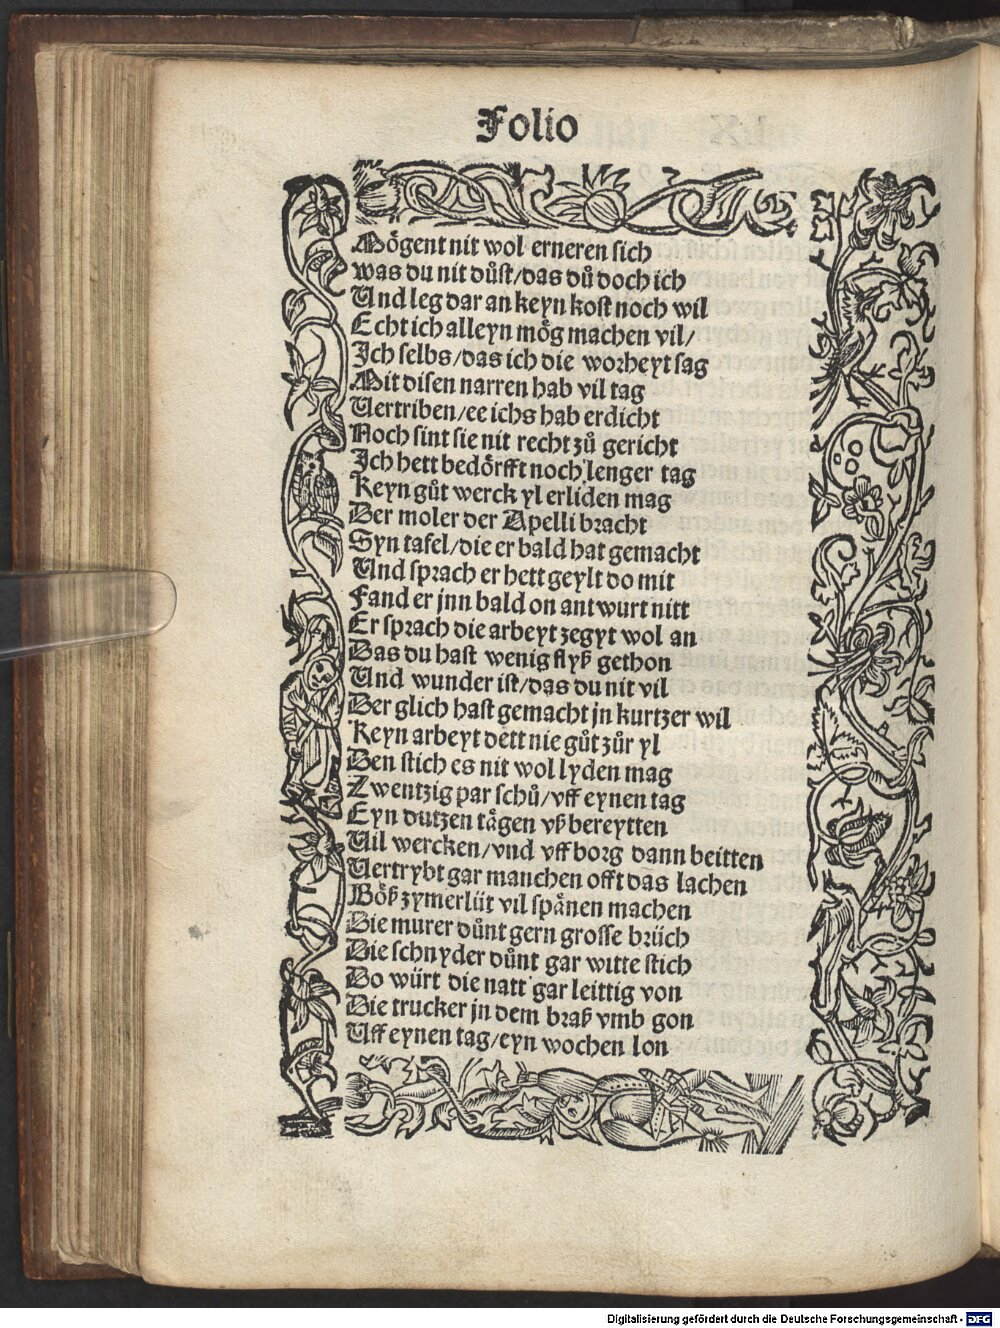 Folio
Mögent nit wol erneren sich
was du nit důst/das dů doch ich
Und leg dar an keyn kost noch wil
Echt ich alleyn mög machen vil/
Ich selbs/das ich die worheyt sag
Mit disen narren hab vil tag
Vertriben/ee ichs hab erdicht
Noch sint sie nit recht zů gericht
Ich hett bedörfft noch lenger tag
Keyn gůt werck yl erliden mag
Der moler der Apelli bracht
Syn tafel/die er bald hat gemacht
Und sprach er hett geylt do mit
Fand er jnn bald on antwurt nitt
Er sprach die arbeyt zegyt wol an
Das du hast wenig flyß gethon
Und wunder ist/das du nit vil
Der glich hast gemacht jn kurtzer wil
Keyn arbeyt dett nie gůt zůr yl
Den stich es nit wol lyden mag
Zwentzig par schů/vff eynen tag
Eyn dutzen tägen vß bereytten
Vil wercken/vnd vff borg dann beitten
Vertrybt gar manchen offt das lachen
Böß zymerlüt vil spänen machen
Die murer důnt gern grosse brüch
Die schnyder důnt gar witte stich
Do würt die natt gar leittig von
Die trucker jn dem braß vmb gon
Uff eynen tag/eyn wochen lon
Digitalisierung gefördert durch die Deutsche Forschungsgemeinschaft - DFG